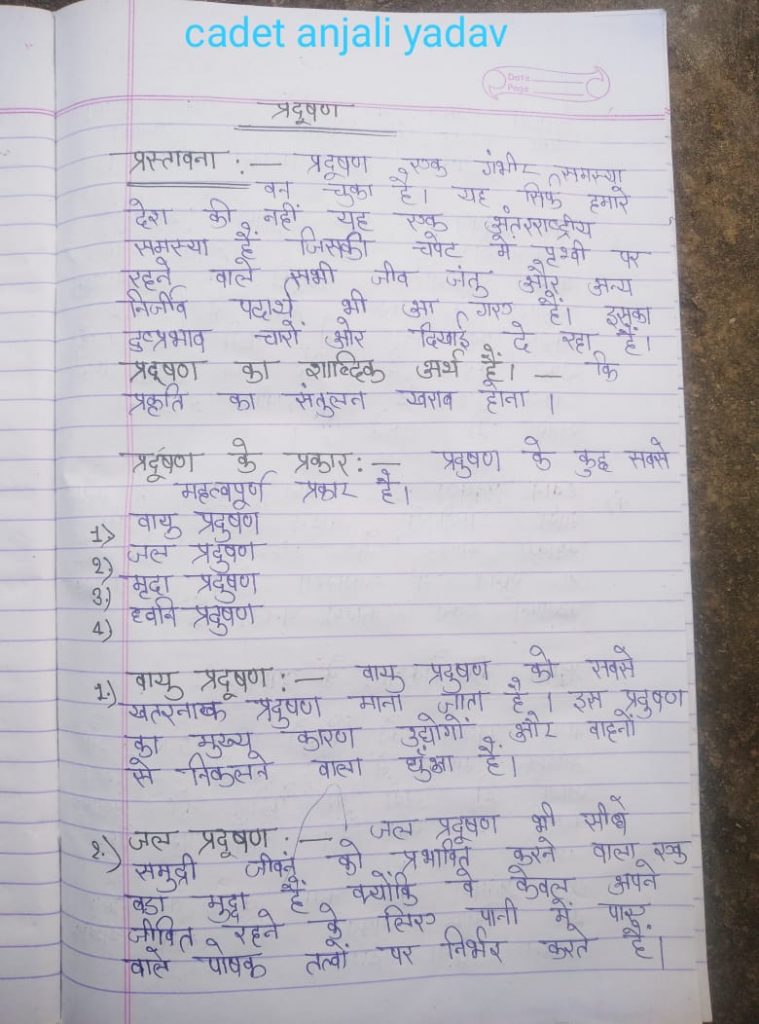 cadet anjali yadav
Date
Page
प्रदूषण
प्रस्तावना : — प्रदूषण एक गंभीर समस्या
बन चुका है। यह सिर्फ हमारे
देश की नहीं यह एक अंतरराष्ट्रीय
समस्या है जिसकी चपेट में पृथ्वी पर
रहने वाले सभी जीव जंतु और अन्य
निर्जीव पदार्थ भी आ गए हैं। इसका
दुष्प्रभाव चारों ओर दिखाई दे रहा हैं।
प्रदूषण का शाब्दिक अर्थ हैं। — कि
प्रकृति का संतुलन खराब होना ।
प्रर्दूषण के प्रकार : — प्रदुषण के कुछ सबसे
महत्वपूर्ण प्रकार है।
1) वायु प्रदुषण
2.) जल प्रदुषण
3.) मृदा प्रदुषण
4) ध्वनि प्रदुषण
1.) वायु प्रदूषण : — वायु प्रदुषण को सबसे
खतरनाक प्रदुषण माना जाता है । इस प्रदुषण
का मुख्य कारण उद्योगों और वाहनों
से निकलने वाला धुँआ है।
2.) जल प्रदूषण : — जल प्रदूषण भी सीधे
समुद्री जीवन को प्रभावित करने वाला एक
बड़ा मुद्दा हैं क्योंकि वे केवल अपने
जीवित रहने के लिए पानी में पाए
वाले पोषक तत्वों पर निर्भर करते हैं।